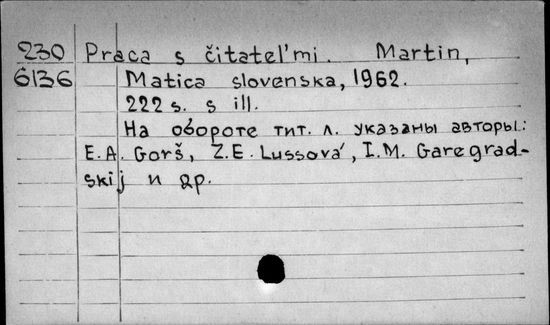 230 Praca s čitateľmi. Martin,
6136 Matica slovenska, 1962.
222 s. s ill.
На обороте тит. л. указаны авторы:
E.A. Gorš, Z.E. Lussová, I.M. Garegrad-
skij и др.